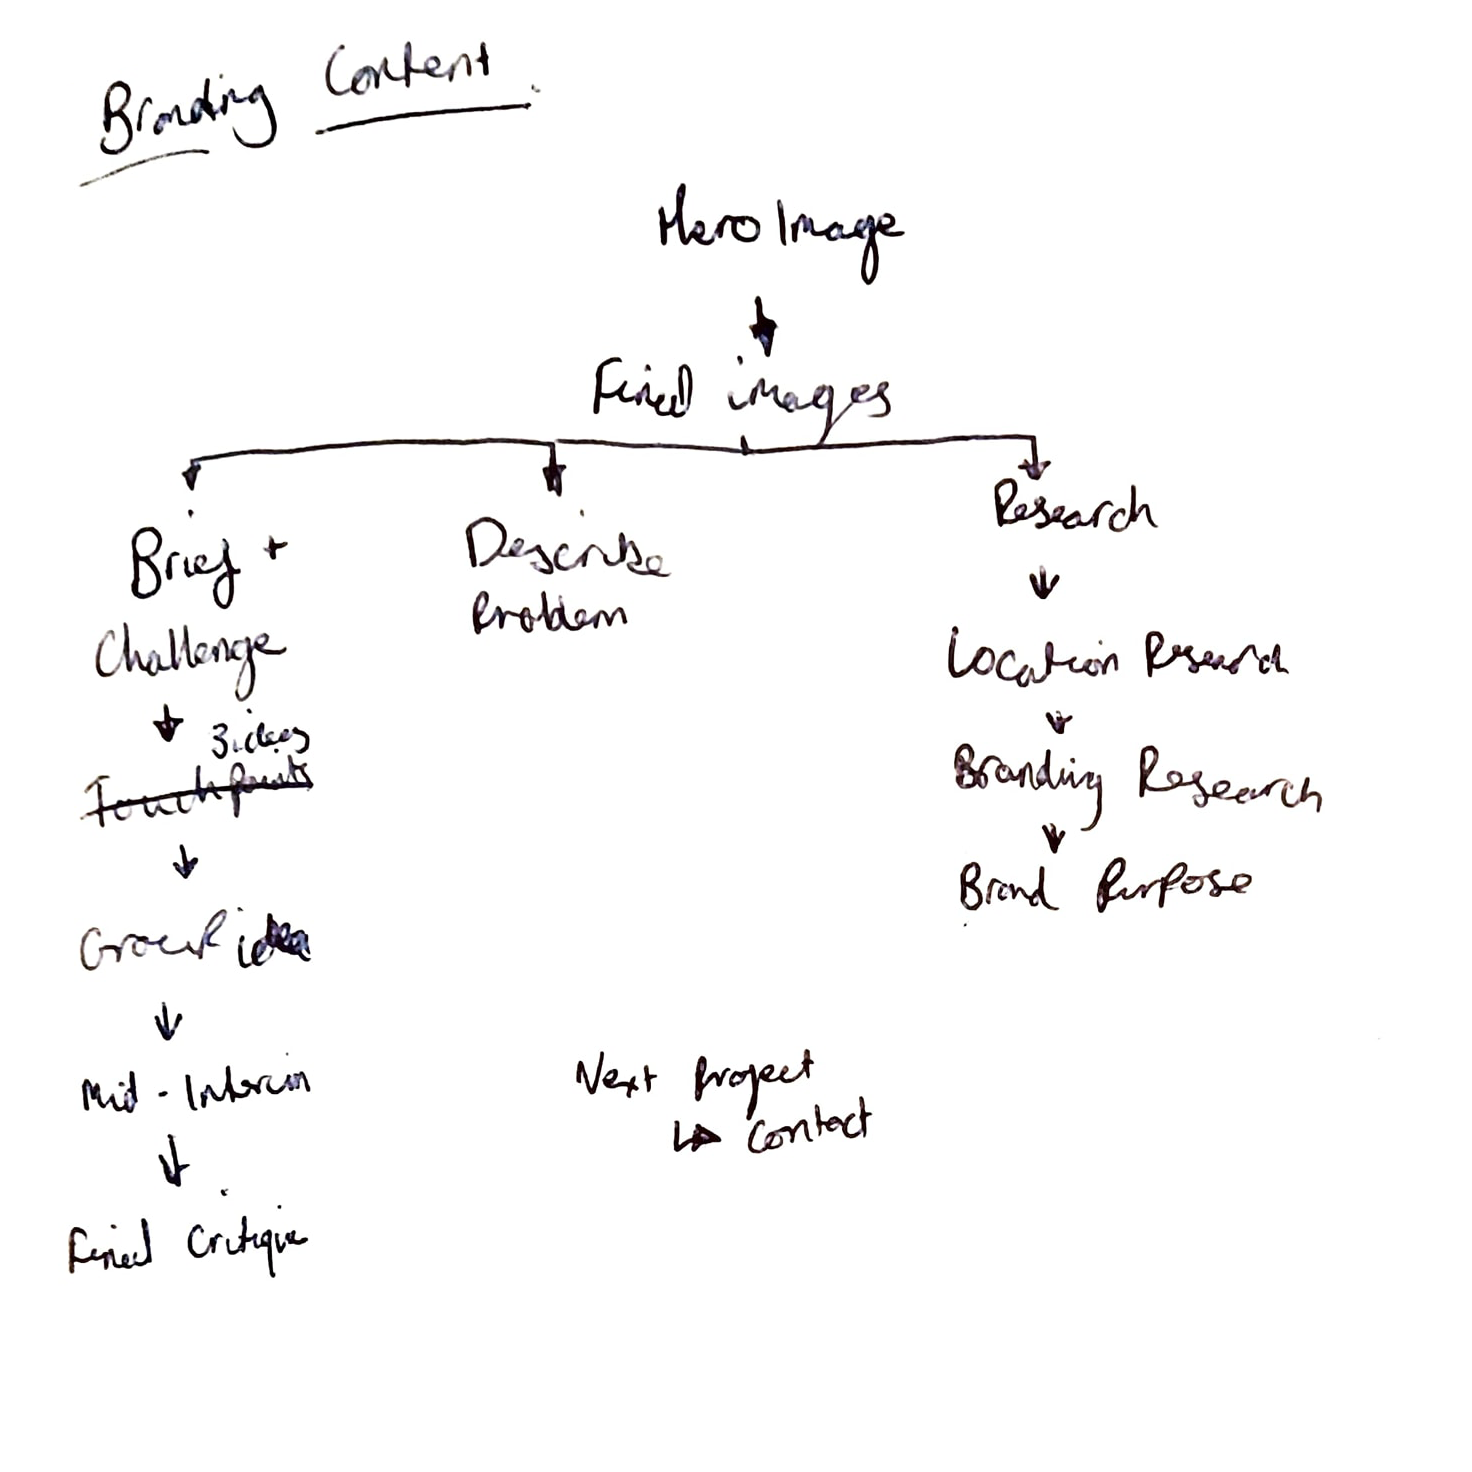 Branding Content
Hero Image
Final images
Brief +
Challenge
Describe
Problem
Research
Location Research
Branding Research
Brand Purpose
3 ideas
Touch Points
Group idea
Mid - Interim
Final Critique
Next Project
Contact